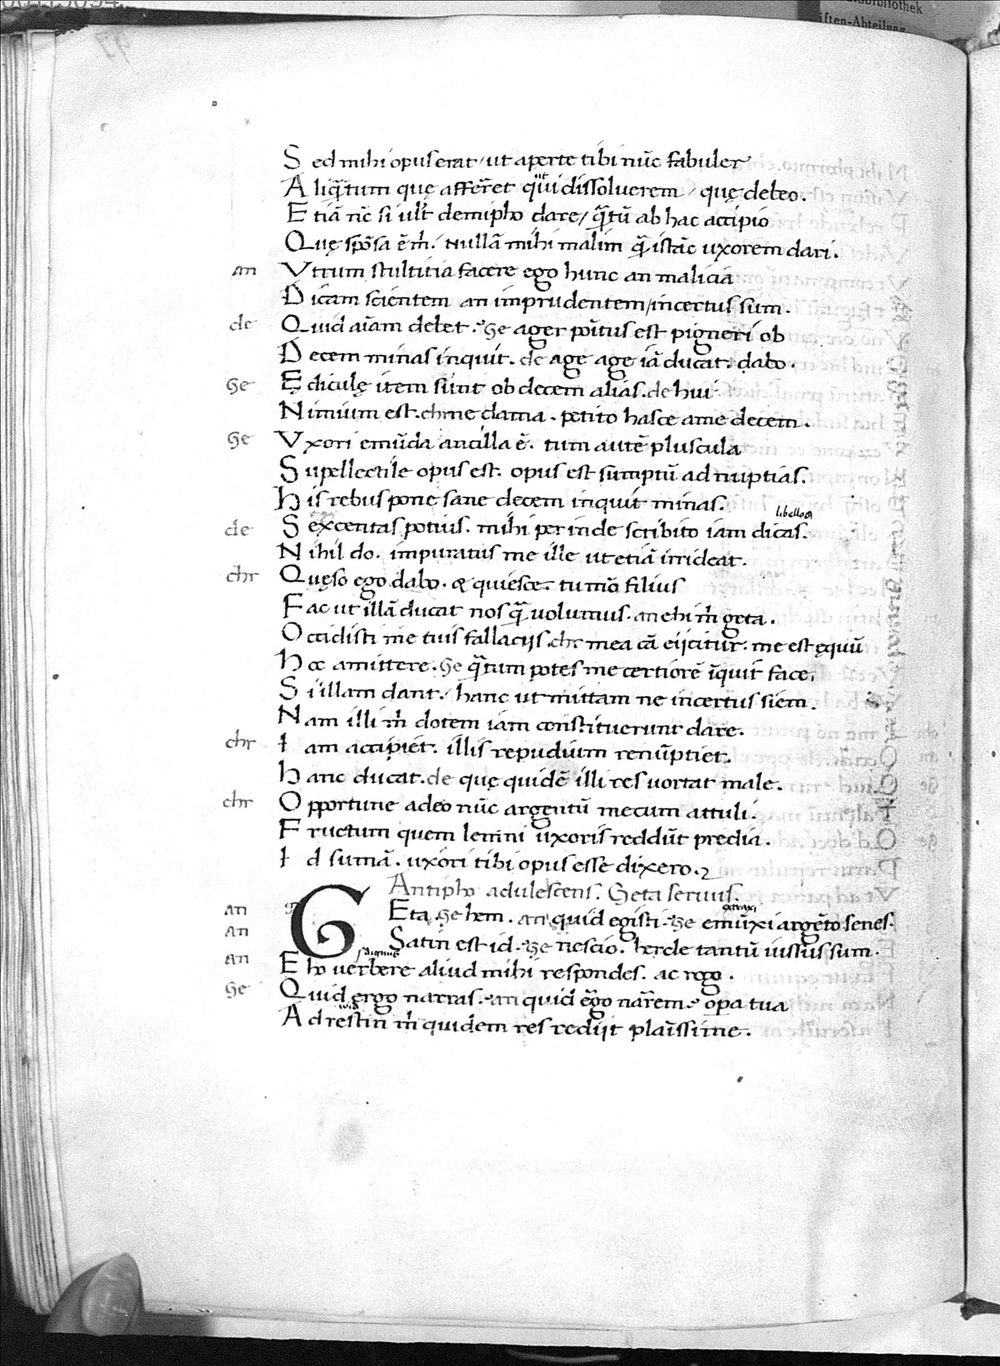 Sed mihi opus erat / ut aperte tibi nūc fabuler
Aliq̄tum quę afferret quī dissoluerem / quę debeo.
Etiā nc̄ si ult̄ demipho dare / q̄tū ab hac accipio
Quę spōsa ē m̄. Nullā mihi malim q̄ istāc uxorem dari.
an Vtrum stultitia facere ego hunc an malicia
Dicam scientem an imprudentem / incertus sum.
de Quid aīam debet. Ge ager pōitus est pigneri ob
Decem minas inquit. de age age iā ducat. dabo.
Ge Ędiculę item sunt ob decem alias. de hui
Nimium est. chr ne clama. petito hasce ame decem.
Ge Vxori emūda ancilla ē. tum autē pluscula
Supellectile opus est. opus est sūmptū ad nuptias.
His rebus pone sane decem inquit minas.
libellos
de Sexcentas potius. mihi per inde scribito iam dicas.
Nihil do. impuratus me ille ut etiā irrideat.
chr Quęso ego dabo. & quiesce. tu mō filius
Fac ut illā ducat nos q̄ uolumus. an ehi m̄ geta.
Occidisti me tuis fallacijs. chr mea cā eijcitur. me est ęquū
Hoc amittere. Ge q̄tum potes me certiorē īquit face,
Si illam dant. / hanc ut mittam ne incertus siem.
Nam illi m̄ dotem iam constituerunt dare.
chr Iam accipiet. illis repudium renūptiet.
Hanc ducat. de quę quidē illi res uortat male.
chr Opportune adeo nūc argentū mecum attuli.
Fructum quem lemni uxoris reddūt predia.
Id sumā. uxori tibi opus esse dixero.
Antipho adulescens. Geta seruus.
an GEta. Ge hem. an quid egisti. Ge emūxi argēto senes.
an Satin est id. Ge nescio. hercle tantū iussus sum.
an Eho uerbero aliud mihi respondes. ac rogo.
Ge Quid ergo narras. an quid ēgo narrem. opa tua
Ad restin m̄ quidem res redijt planissime.